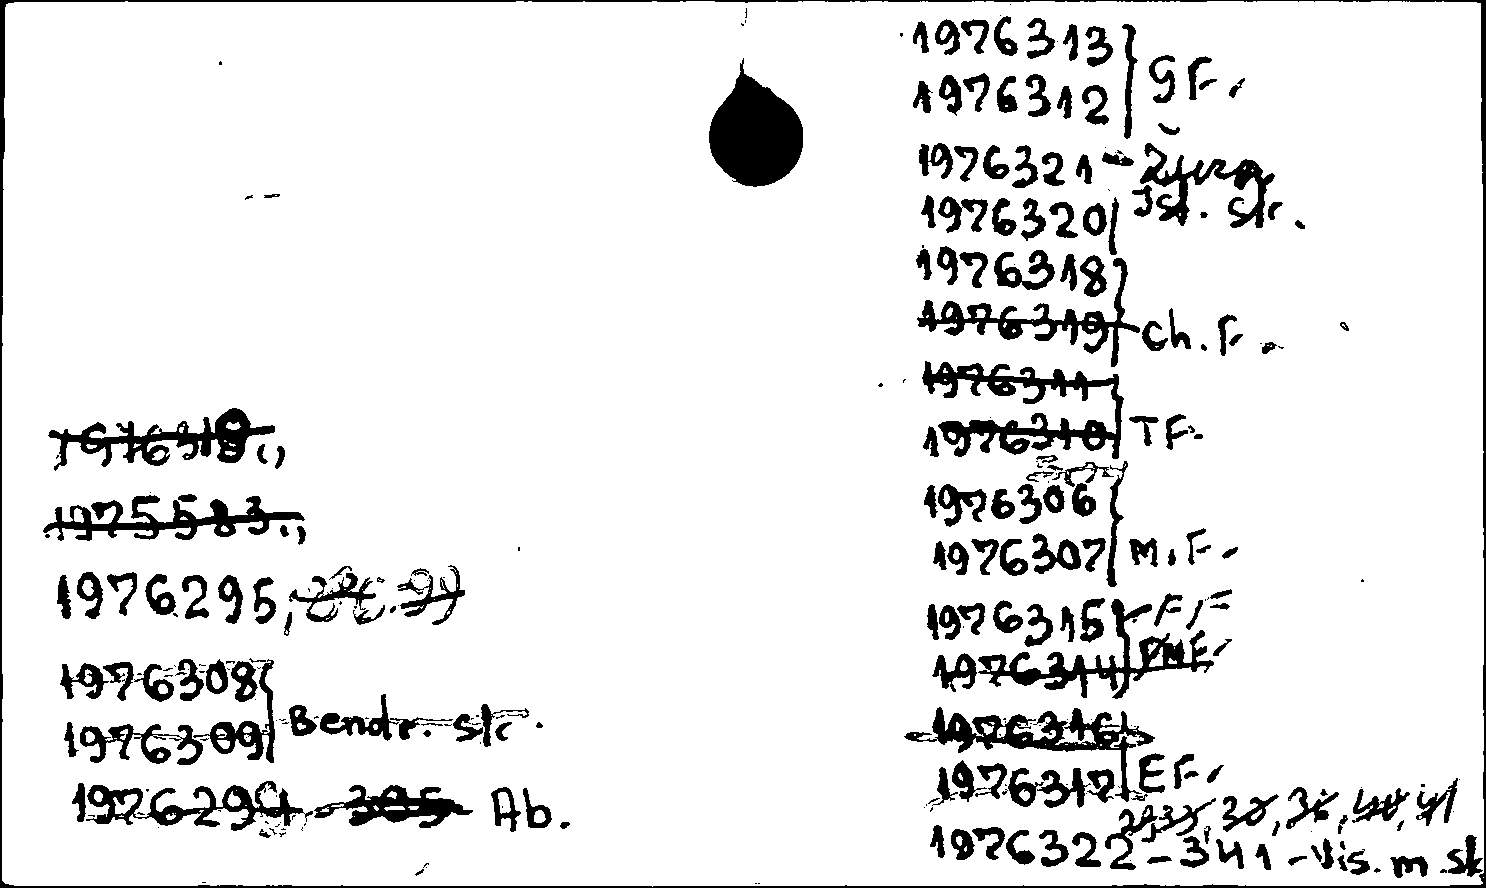 1976318.,
1975583.,
1976295,
1976308
1976309 Bendr. str.
1976299 - 305 Ab.
1976313
1976312 GF.
1976321 - Žurn.
1976320 Ist. str.
1976318
1976319 Ch. F.
1976311
1976310 TF.
1976306
1976307 M.F.
1976315 - FF
1976314 PMF.
1976316
1976317 EF.
1976322 - 341 - Vis. m. sk